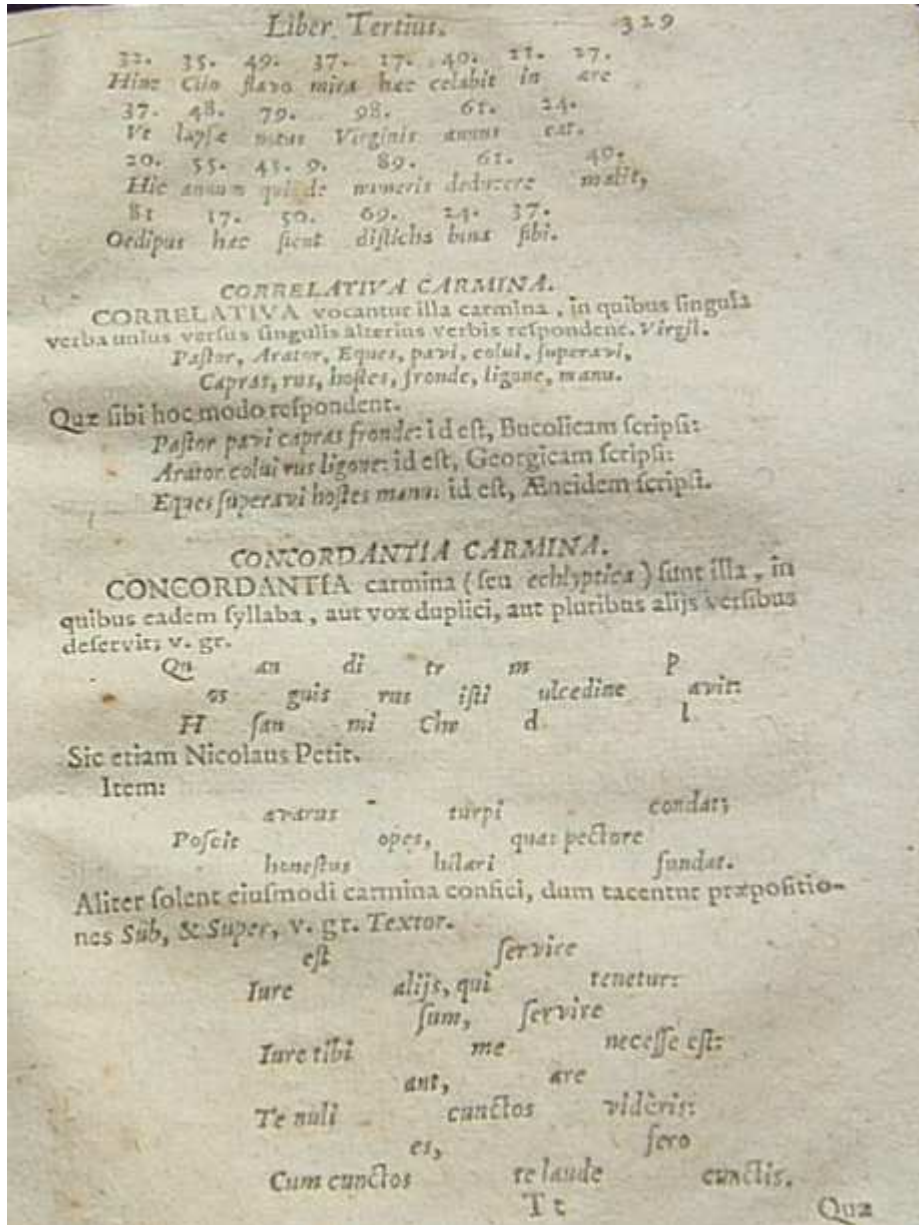 Liber Tertius. 329
32. 35. 49. 37. 17. 40. 23. 27.
Hinc Clio flavo mira hæc celabit in ære
37. 48. 79. 98. 61. 24.
Vt lapsæ Virginis annus eat.
20. 55. 43. 9. 89. 61. 40.
Hic annum qui de numeris deducere malit,
81 17. 50. 69. 24. 37.
Oedipus hæc fient disticha bina sibi.
CORRELATIVA CARMINA.
CORRELATIVA vocantur illa carmina, in quibus singula
verba unius versus singulis alterius verbis respondent. Virgil.
Pastor, Arator, Eques, pavi, colui, superavi,
Capras, rus, hostes, fronde, ligone, manu.
Quæ sibi hoc modo respondent.
Pastor pavi capras fronde: id est, Bucolicam scripsi:
Arator colui rus ligone: id est, Georgicam scripsi:
Eques superavi hostes manu: id est, Æneidem scripsi.
CONCORDANTIA CARMINA.
CONCORDANTIA carmina (seu echlyptica) sunt illa, in
quibus eadem syllaba, aut vox duplici, aut pluribus alijs versibus
deservit; v. gr.
Qu an di tr m P
os guis rus isti ulcedine avit:
H san mi Chr d l
Sic etiam Nicolaus Petit.
Item:
avarus turpi condat;
Poscit opes, quas pectore
honestus hilari fundat.
Aliter solent eiusmodi carmina confici, dum tacentur præpositio-
nes Sub, & Super, v. gr. Textor.
est servire
Iure alijs, qui tenetur:
sum, servire
Iure tibi me necesse est:
ant, are
Te nuli cunctos vidèris:
es, fero
Cum cunctos te laude cunctis.
T t Quæ